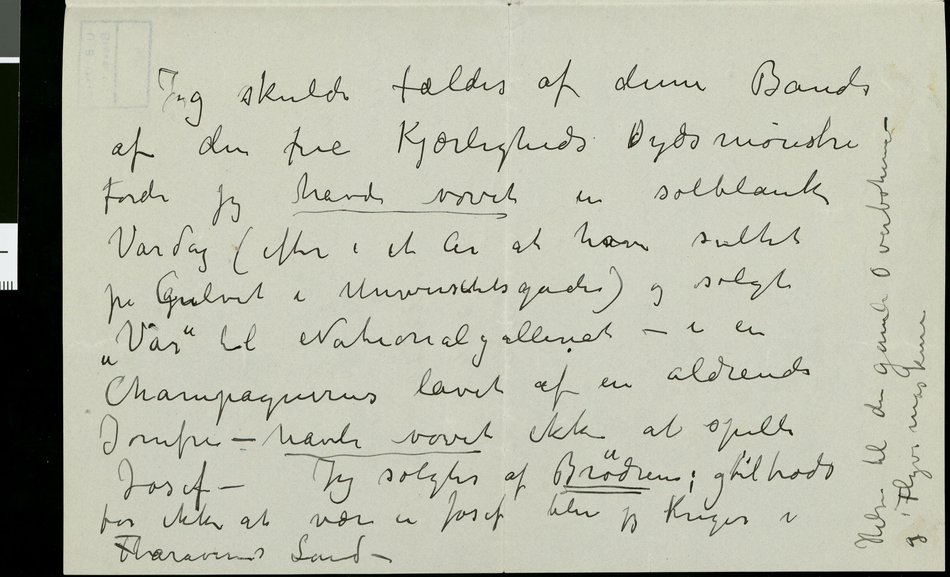 Jeg skulde fældes af denne Bande
af den frie Kjærligheds Dydsmønstre
Fordi jeg havde vovet en solblank
Vårdag (efter i et År at have sultet
på Gulvet i Universitetsgaden) og solgt
„Vår“ til Nationalgalleriet – i en
Champagnerus lavet af en aldrende
Jomfru – havde vovet ikke at spille
Josef – Jeg solgtes af Brödrene; gtiltrods
for ikke at være en Josef blev jeg Kriger i
Faraoernes Land –
Hilsen til den gamle
og i Flyvemaskine